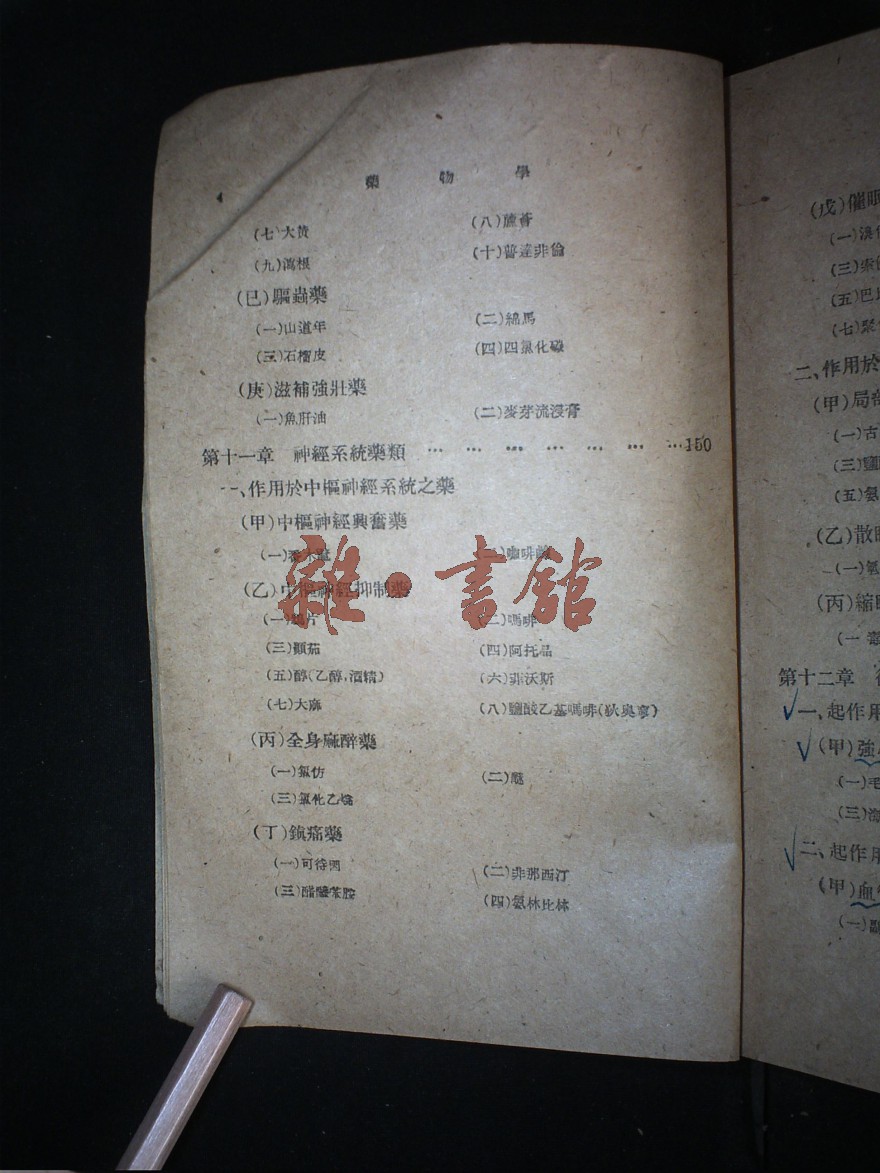 4 藥物學
(七)大黄 (八)蘆薈
(九)瀉根 (十)普達非倫
(巳)驅蟲藥
(一)山道年 (二)綿馬
(三)石榴皮 (四)四氯化碳
(庚)滋補強壯藥
(一)魚肝油 (二)麥芽流浸膏
第十一章 神經系統藥類 … … … … … … …150
一、作用於中樞神經系統之藥
(甲)中樞神經興奮藥
(一) (二)咖啡鹼
(乙)中樞神經抑制藥
(一)鴉片 (二)嗎啡
(三)顛茄 (四)阿托品
(五)醇(乙醇,酒精) (六)菲沃斯
(七)大麻 (八)鹽酸乙基嗎啡(狄奥寧)
(丙)全身麻醉藥
(一)氯仿 (二)醚
(三)氯化乙烷
(丁)鎮痛藥
(一)可待因 (二)非那西汀
(三)醋醯苯胺 (四)氨林比林
雜·書館
(戊)催眠
(一)溴
(三)
(五)巴
(七)聚
二、作用於
(甲)局部
(一)古
(三)鹽
(五)氨
(乙)散瞳
(一)氫
(丙)縮瞳
(一
第十二章
一、起作用
(甲)強
(一)毛
(三)海
二、起作用
(甲)血
(一)